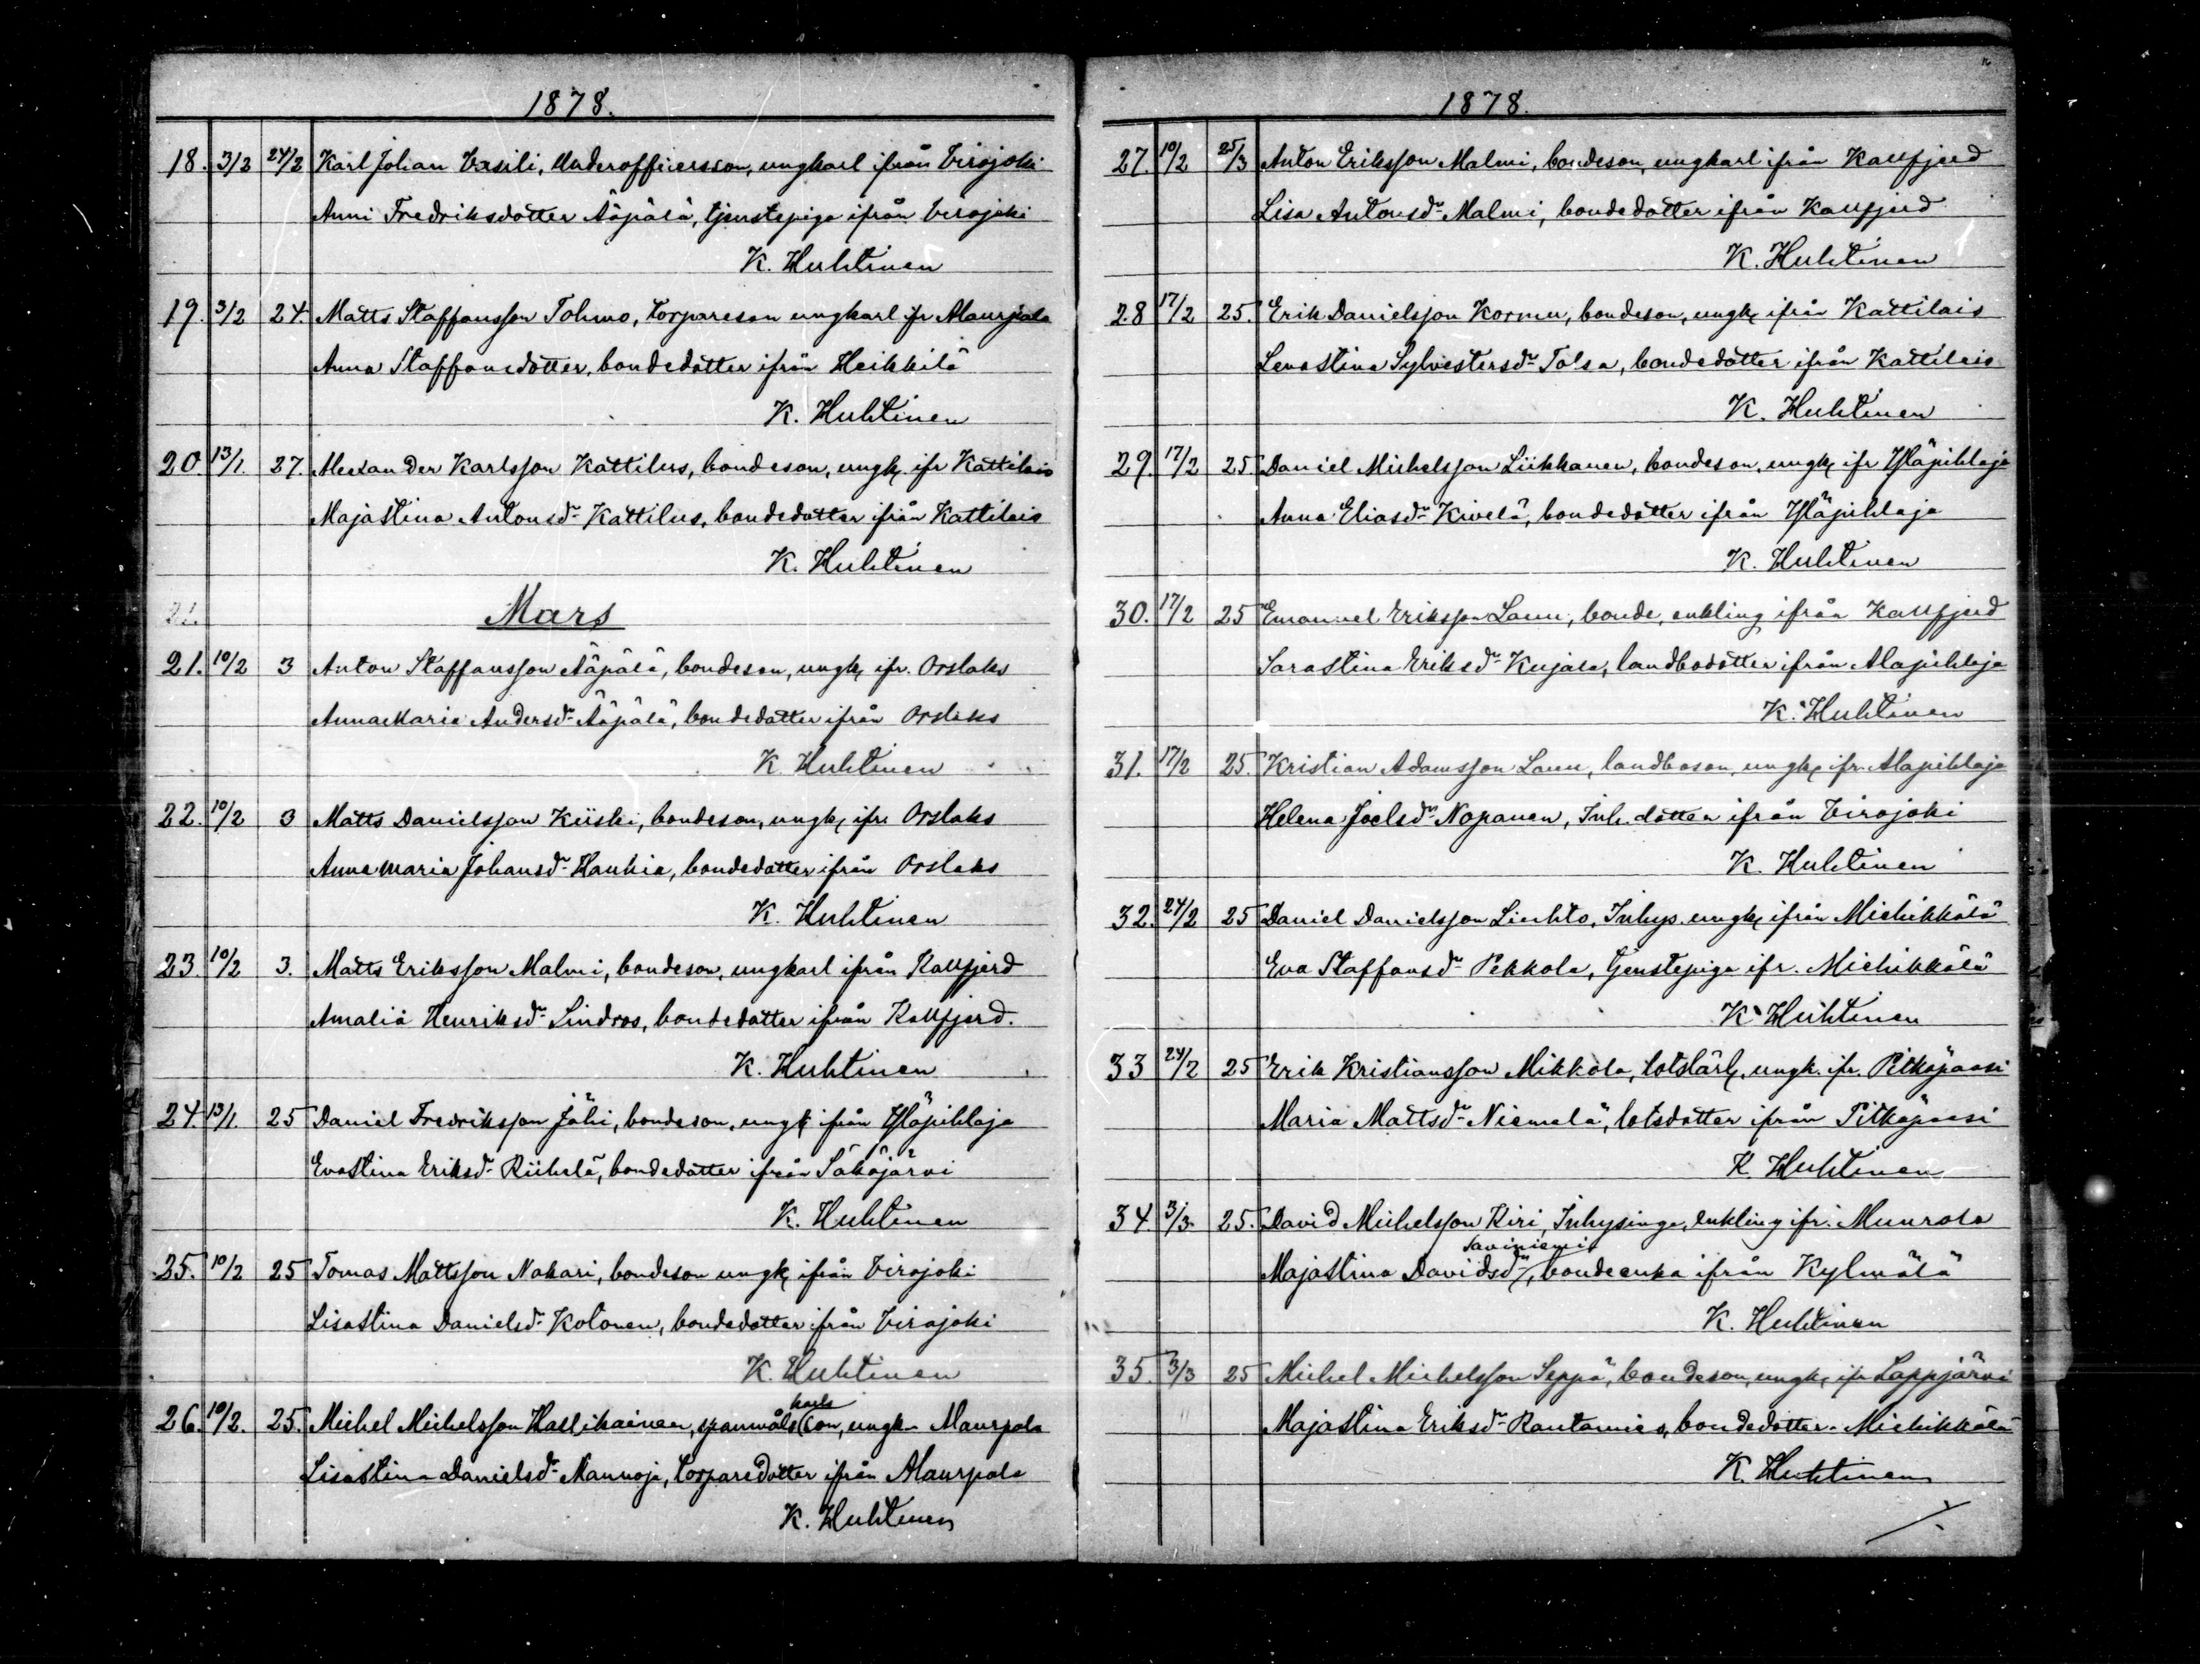 1878.
18. 3/2 24/2 Karl Johan Vasili, Underofficersson, ungkarl ifrån Virojoki
Anni Fredriksdotter Ääpälä, tjenstepiga ifrån Virojoki
K. Huhtinen
19. 3/2 24. Matts Staffansson Tohmo, torpareson ungkarl ifr Alaurpala
Anna Staffansdotter, bondedotter ifrån Heikkilä
K. Huhtinen
20. 13/1. 27. Alexander Karlsson Kattilus, bondeson, ungk. ifr Kattilais
Majastina Antonsdr Kattilus, bondedotter ifrån Kattilais
K. Huhtinen
21. Mars
21. 10/2 3 Anton Staffansson Ääpälä, bondeson, ungk, ifr. Orslaks
Annamaria Andersdr Ääpälä, bondedotter ifrån Orslaks
K. Huhtinen
22. 10/2 3 Matts Danielsson Kiiski, bondeson, ungk, ifr. Orslaks
Annamaria Johansdr Haukia, bondedotter ifrån Orslaks
K. Huhtinen
23. 10/2 3. Matts Eriksson Malmi, bondeson, ungkarl ifrån Kallfjerd
Amalia Henriksdr Sindros, bondedotter ifrån Kallfjerd.
K. Huhtinen
24. 13/1. 25 Daniel Fredriksson Jähi, bondeson, ungk ifrån Yläpihlaja
Evastina Eriksdr Riihelä, bondedotter ifrån Säkäjärvi
K. Huhtinen
25. 10/2 25 Tomas Mattsson Nakari, bondeson ungk, ifrån Virojoki
Lisastina Danielsdr Kolonen, bondedotter ifrån Virojoki
K. Huhtinen
karls
26. 10/2. 25. Michel Michelsson Hallikainen, spanmåls son, ungk. Alaurpala
Lisastina Danielsdr Mannoja, torparedotter ifrån Alaurpala
K. Huhtinen
1878.
27. 10/2 25/3 Anton Eriksson Malmi, bondeson, ungkarl ifrån Kallfjerd
Lisa Antonsdr Malmi, bondedotter ifrån Kallfjerd
K. Huhtinen
28 17/2 25. Erik Danielsson Kormu, bondeson, ungk, ifrån Kattilais
Lenastina Sylvestersdr Tolsa, bondedotter ifrån Kattilais
K. Huhtinen
29. 17/2 25 Daniel Michelsson Liikkanen, bondeson, ungk, ifr Yläpihlaja
Anna Eliasdr Kivelä, bondedotter ifrån Yläpihlaja
K. Huhtinen
30. 17/2 25 Emanuel Eriksson Laun, bonde, enkling ifrån Kallfjerd
Sarastina Eriksdr Kujala, landbodotter ifrån Alapihlaja
K. Huhtinen
31. 17/2 25. Kristian Adamsson Laun, landboson, ungk, ifr. Alapihlaja
Helena Joelsdr Nopanen, Inh. dotter ifrån Virojoki
K. Huhtinen
32. 24/2 25 Daniel Danielsson Liehto, Inhys. ungk, ifrån Miehikkälä
Eva Staffansdr Pekkola, tjenstepiga ifr. Miehikkälä
K. Huhtinen
33 24/2 25 Erik Kristiansson Mikkola, lotslärl, ungk. ifr. Pitkäpaasi
Maria Mattsdr Niemelä, lotsdotter ifrån Pitkäpaasi
K. Huhtinen
34. 3/3. 25. David Michelsson Kiri, Inhysinge, enkling ifr. Muurola
Saviniemi
Majastina Davidsdr, bondeenka ifrån Kylmälä
K. Huhtinen
35. 3/3 25 Michel Michelsson Seppä, bondeson, ungk, ifr Lappjärvi
Majastina Eriksdr Rantamies, bondedotter Miehikkälä
K. Huhtinen